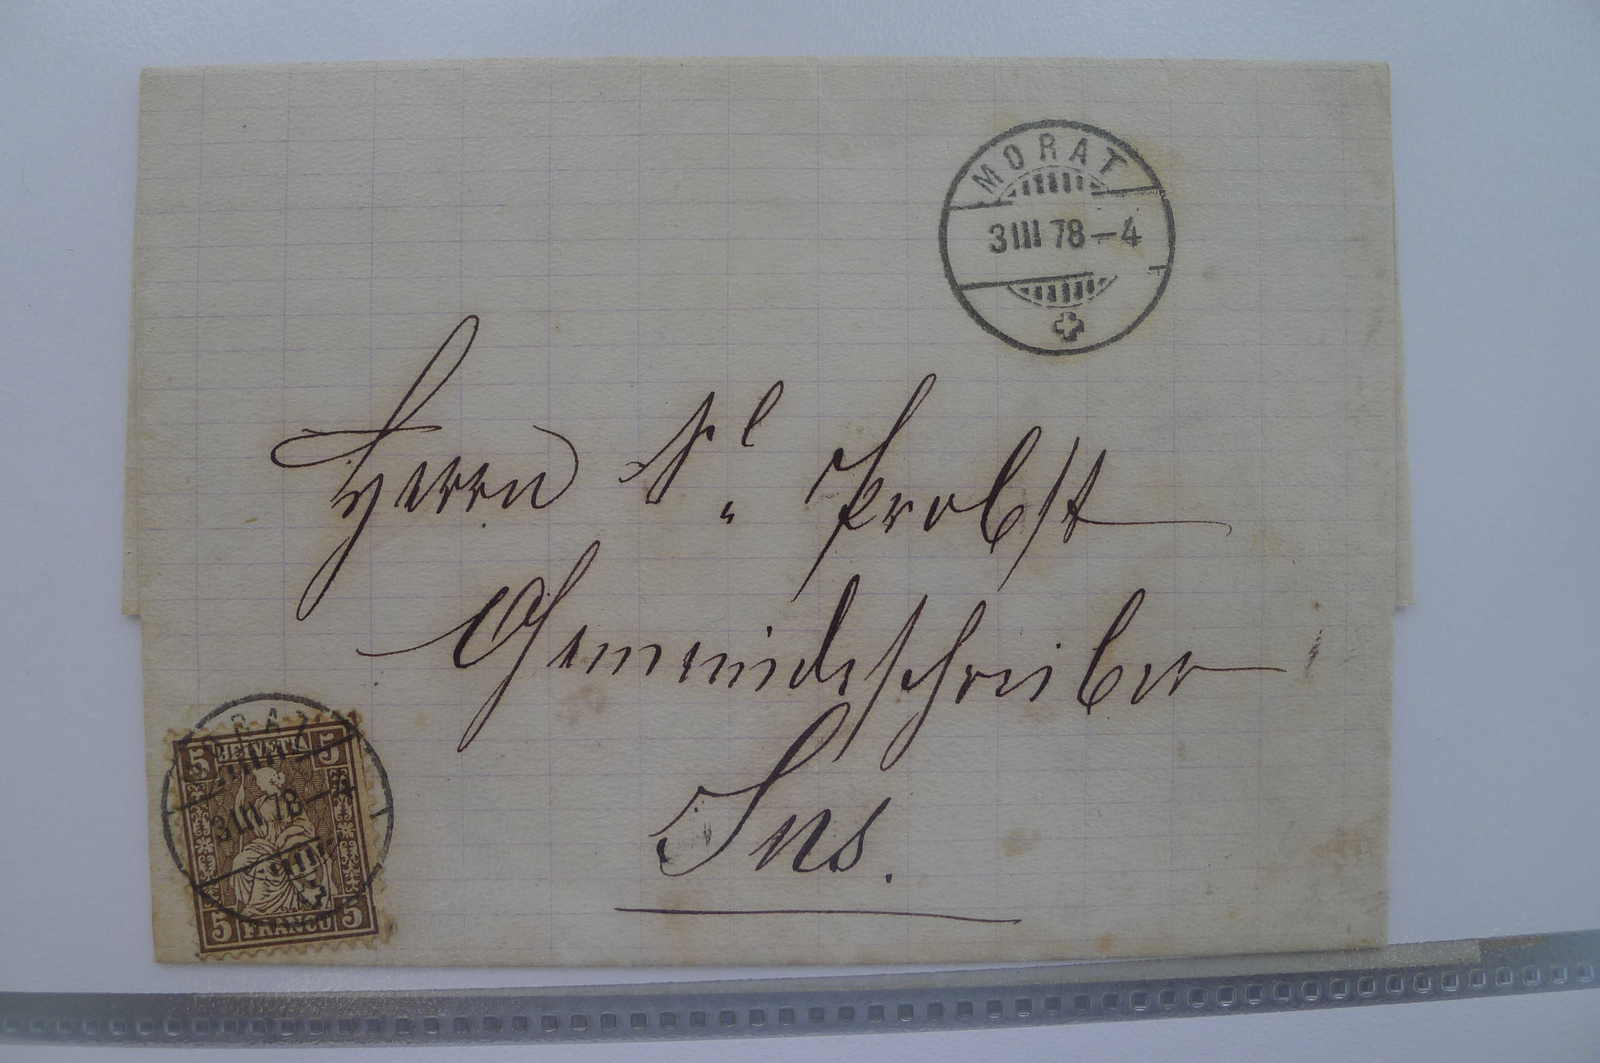 MORAT
3 III 78 – 4
Herrn
Probst
Gemeindeschreiber
Ins.
5 HELVETIA 5
3 III 78 – 4
5 FRANCO 5